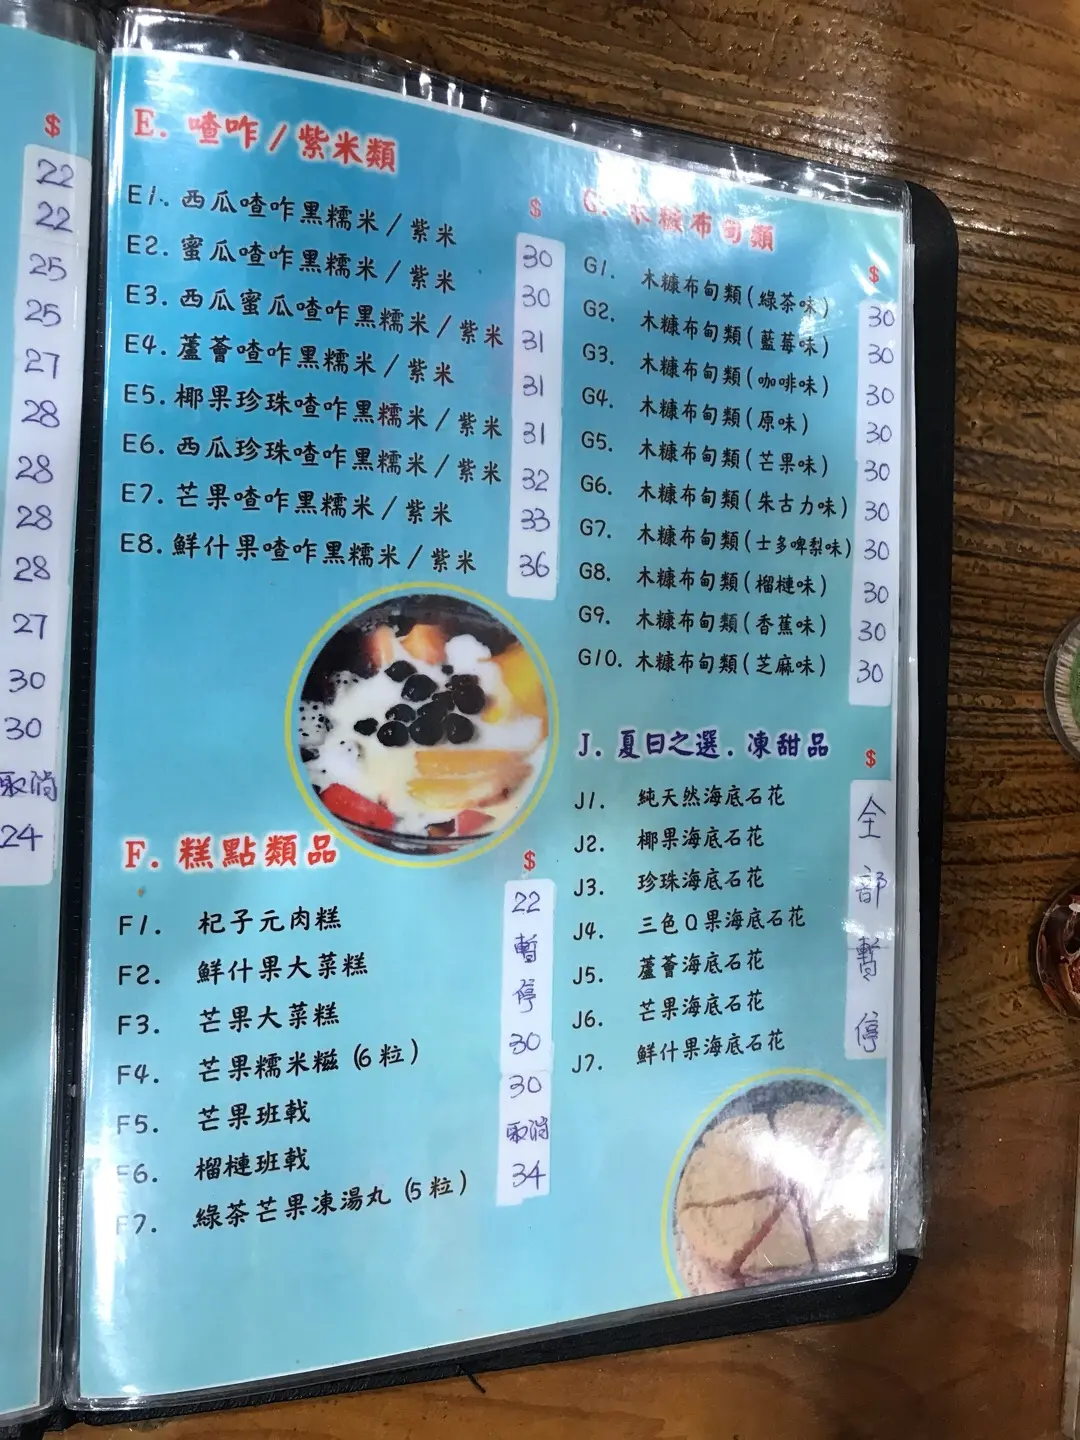 $
22
22
25
25
27
28
28
28
28
27
30
30
取消
24
E. 喳咋/紫米類
$
E1. 西瓜喳咋黑糯米/紫米 30
E2. 蜜瓜喳咋黑糯米/紫米 30
E3. 西瓜蜜瓜喳咋黑糯米/紫米 31
E4. 蘆薈喳咋黑糯米/紫米 31
E5. 椰果珍珠喳咋黑糯米/紫米 31
E6. 西瓜珍珠喳咋黑糯米/紫米 32
E7. 芒果喳咋黑糯米/紫米 33
E8. 鮮什果喳咋黑糯米/紫米 36
F. 糕點類品
$
F1. 杞子元肉糕 22
F2. 鮮什果大菜糕 暫
F3. 芒果大菜糕 停
F4. 芒果糯米糍 (6粒) 30
F5. 芒果班戟 30
F6. 榴槤班戟 取消
F7. 綠茶芒果凍湯丸 (5粒) 34
G. 木糠布甸類
$
G1. 木糠布甸類(綠茶味) 30
G2. 木糠布甸類(藍莓味) 30
G3. 木糠布甸類(咖啡味) 30
G4. 木糠布甸類(原味) 30
G5. 木糠布甸類(芒果味) 30
G6. 木糠布甸類(朱古力味) 30
G7. 木糠布甸類(士多啤梨味) 30
G8. 木糠布甸類(榴槤味) 30
G9. 木糠布甸類(香蕉味) 30
G10. 木糠布甸類(芝麻味) 30
J. 夏日之選. 凍甜品
$
J1. 純天然海底石花
J2. 椰果海底石花
J3. 珍珠海底石花
J4. 三色Q果海底石花
J5. 蘆薈海底石花
J6. 芒果海底石花
J7. 鮮什果海底石花
全部暫停